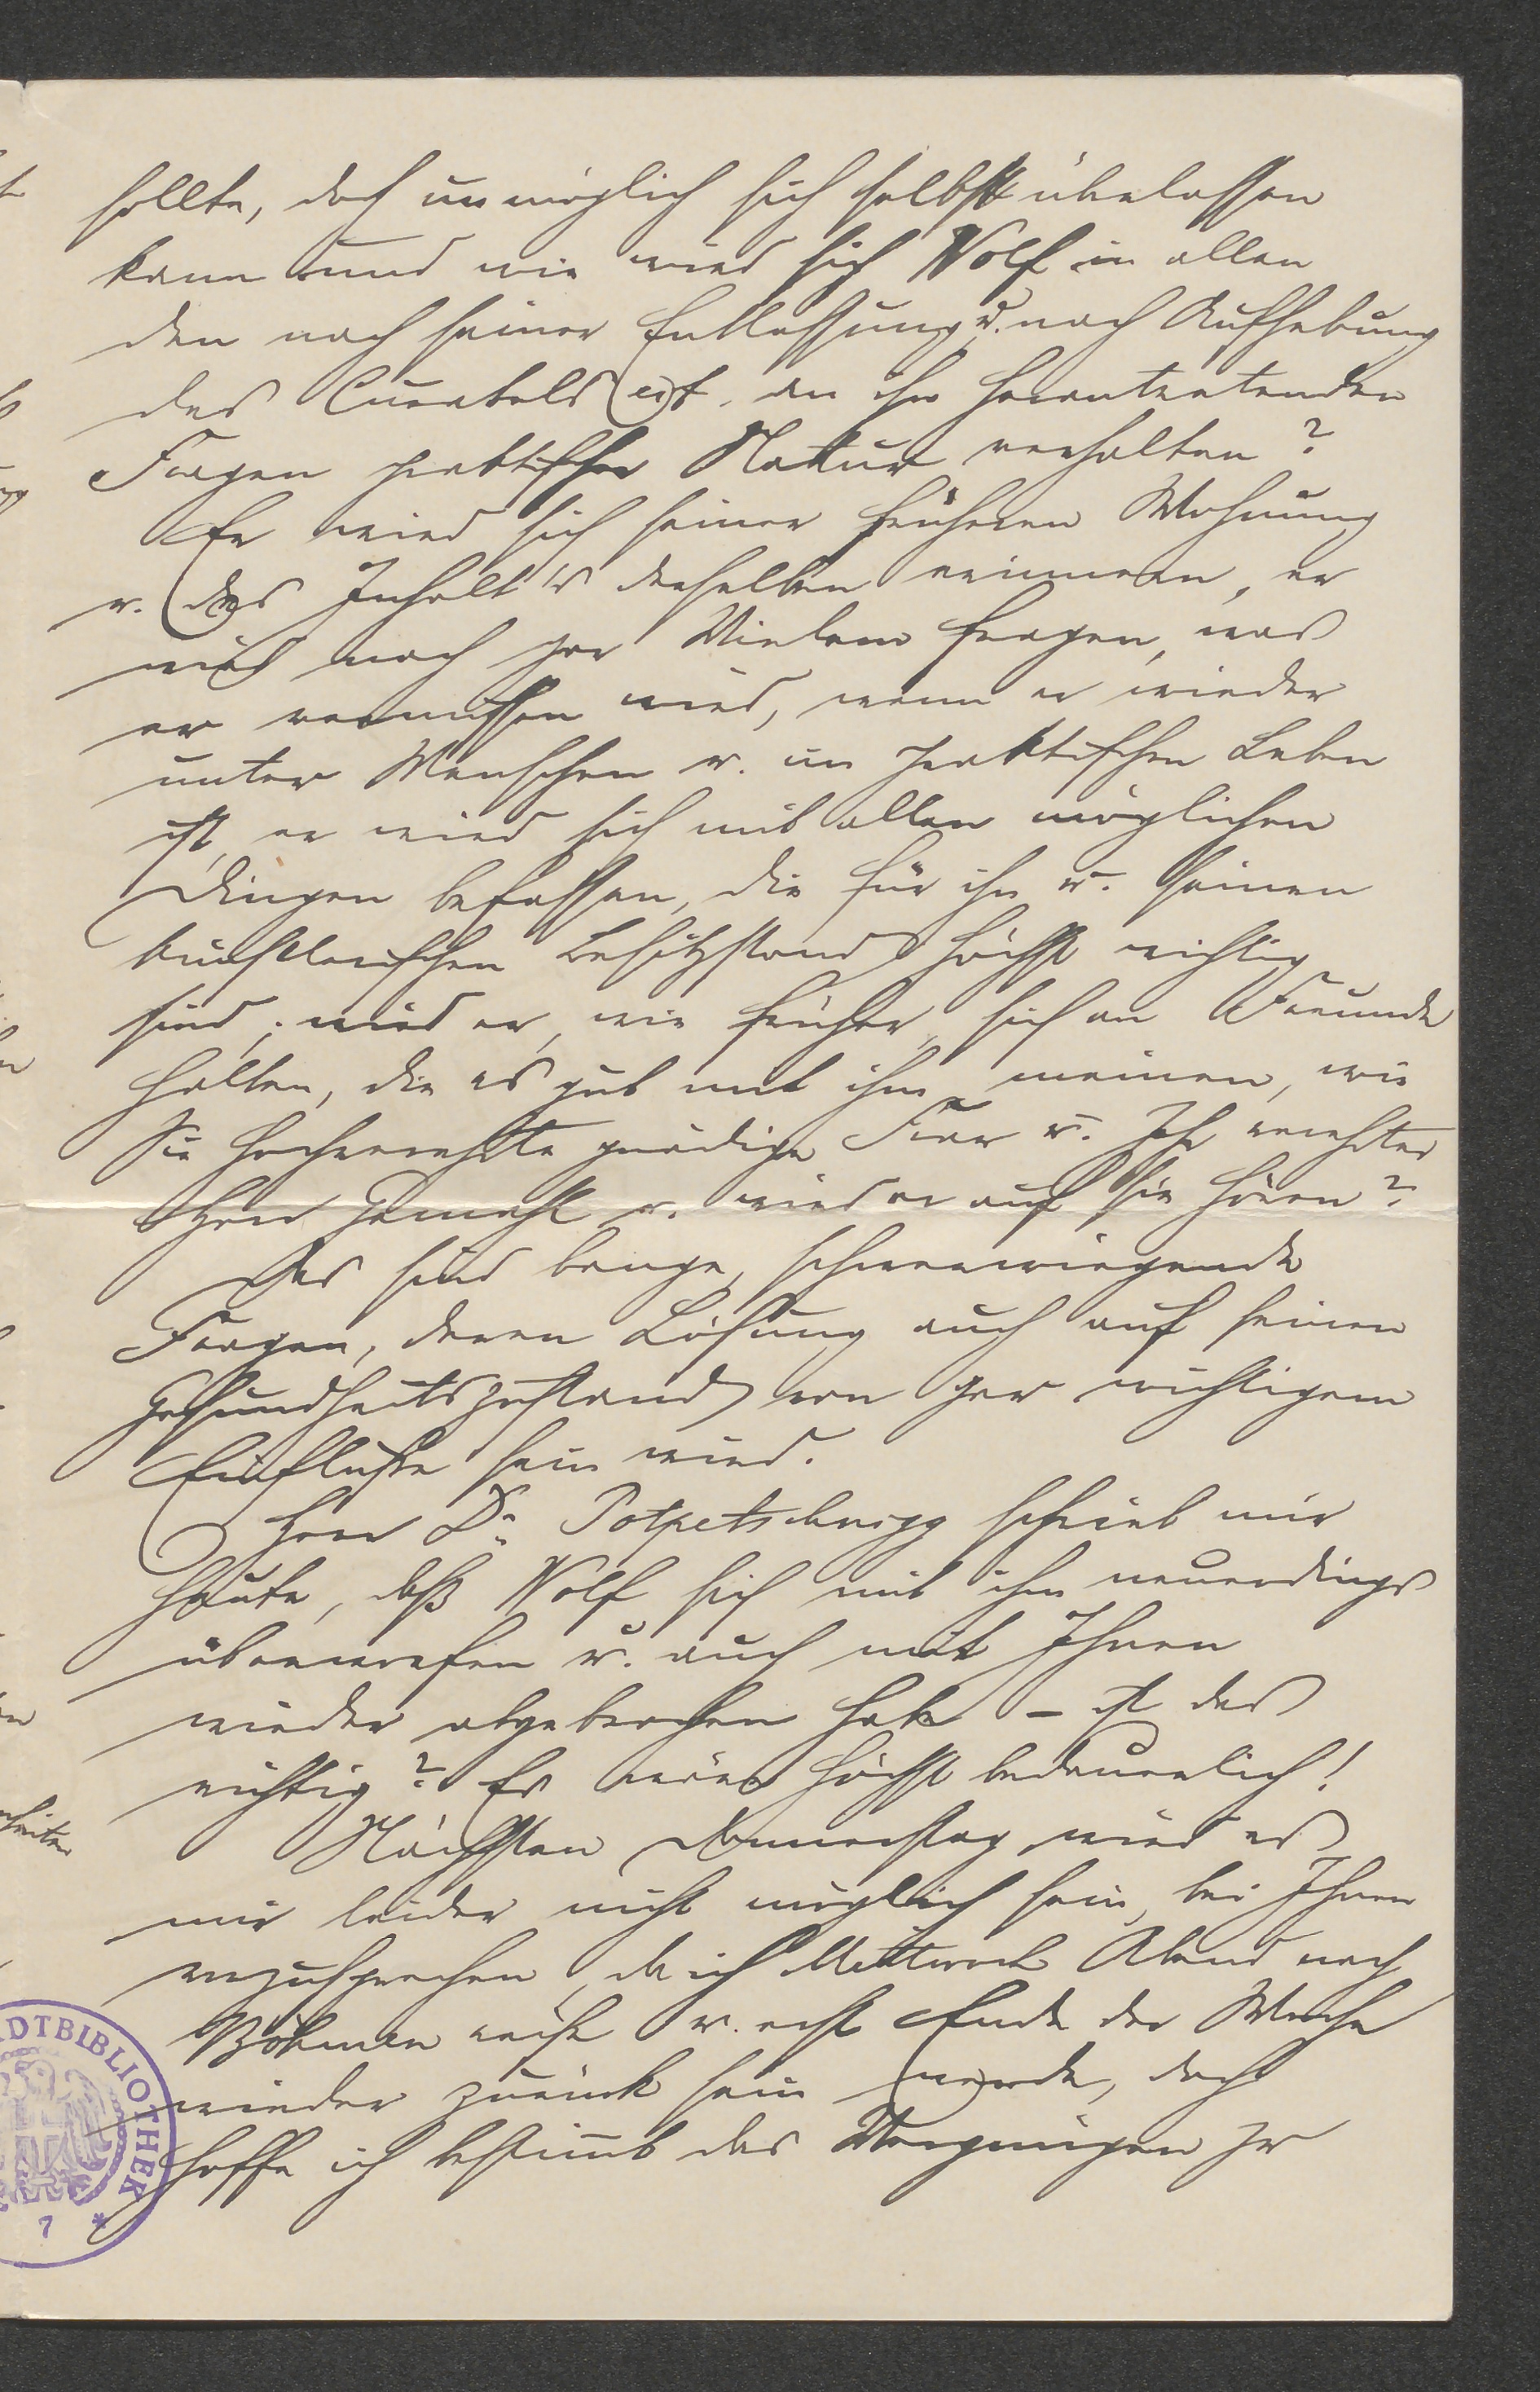 sollte, doch unmöglich sich selbst überlassen
kann und wie wird sich Wolf in allen
den nach seiner Entlassung u. nach Aufhebung
des Curatels an ihn herantretenden
Fragen praktischer Natur verhalten?
Er wird sich seiner früheren Wohnung
u. des Inhalt's derselben erinnern, er
wird nach gar Vielem fragen, was
er vermissen wird, wenn er wieder
unter Menschen u. im praktischen Leben
ist, er wird sich mit allen möglichen
Dingen befassen, die für ihn u. seinen
künstlerischen Besitzstand höchst wichtig
sind; wird er, wie früher, sich an Freunde
halten, die es gut mit ihm meinen, wie
Sie hochverehrte gnädige Frau u. Ihr verehrter
Herr Gemahl u. wird er auf sie hören?
Das sind bange, schwerwiegende
Fragen, deren Lösung auch auf seinen
Gesundheitszustand von gar wichtigem
Einflusse sein wird.
Herr Dr. Potpetschnigg schrieb mir
heute, daß Wolf sich mit ihm neuerdings
überworfen u. auch mit Ihnen
wieder abgebrochen habe – ist das
richtig? Es wäre höchst bedauerlich!
Nächsten Donnerstag wird es
mir leider nicht möglich sein, bei Ihnen
vorzusprechen, da ich Mittwoch Abend nach
Böhmen reise u. erst Ende der Woche
wieder zurück sein werde, doch
hoffe ich bestimmt das Vergnügen zu
DTBIBLIOTHEK
7 *